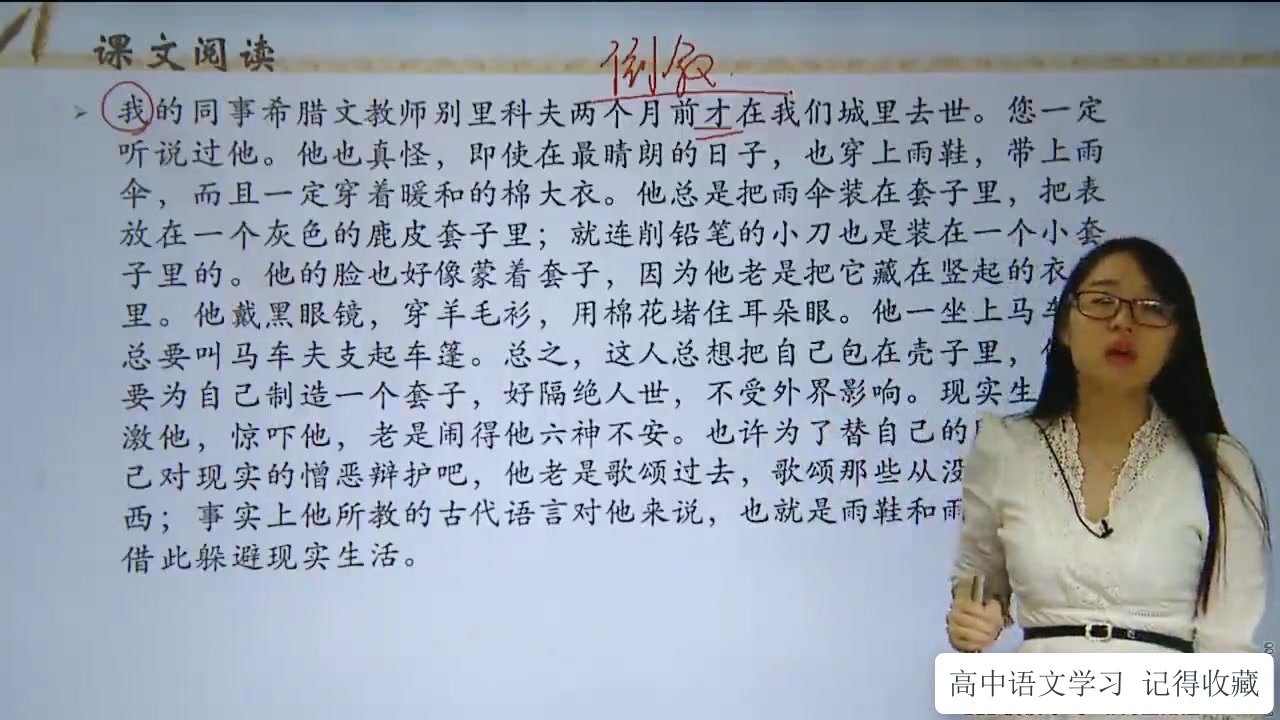 课文阅读
倒叙
我的同事希腊文教师别里科夫两个月前才在我们城里去世。您一定
听说过他。他也真怪，即使在最晴朗的日子，也穿上雨鞋，带上雨
伞，而且一定穿着暖和的棉大衣。他总是把雨伞装在套子里，把表
放在一个灰色的鹿皮套子里；就连削铅笔的小刀也是装在一个小套
子里的。他的脸也好像蒙着套子，因为他老是把它藏在竖起的衣
里。他戴黑眼镜，穿羊毛衫，用棉花堵住耳朵眼。他一坐上马车
总要叫马车夫支起车篷。总之，这人总想把自己包在壳子里，
要为自己制造一个套子，好隔绝人世，不受外界影响。现实生
激他，惊吓他，老是闹得他六神不安。也许为了替自己的
己对现实的憎恶辩护吧，他老是歌颂过去，歌颂那些从没
西；事实上他所教的古代语言对他来说，也就是雨鞋和雨
借此躲避现实生活。
高中语文学习 记得收藏